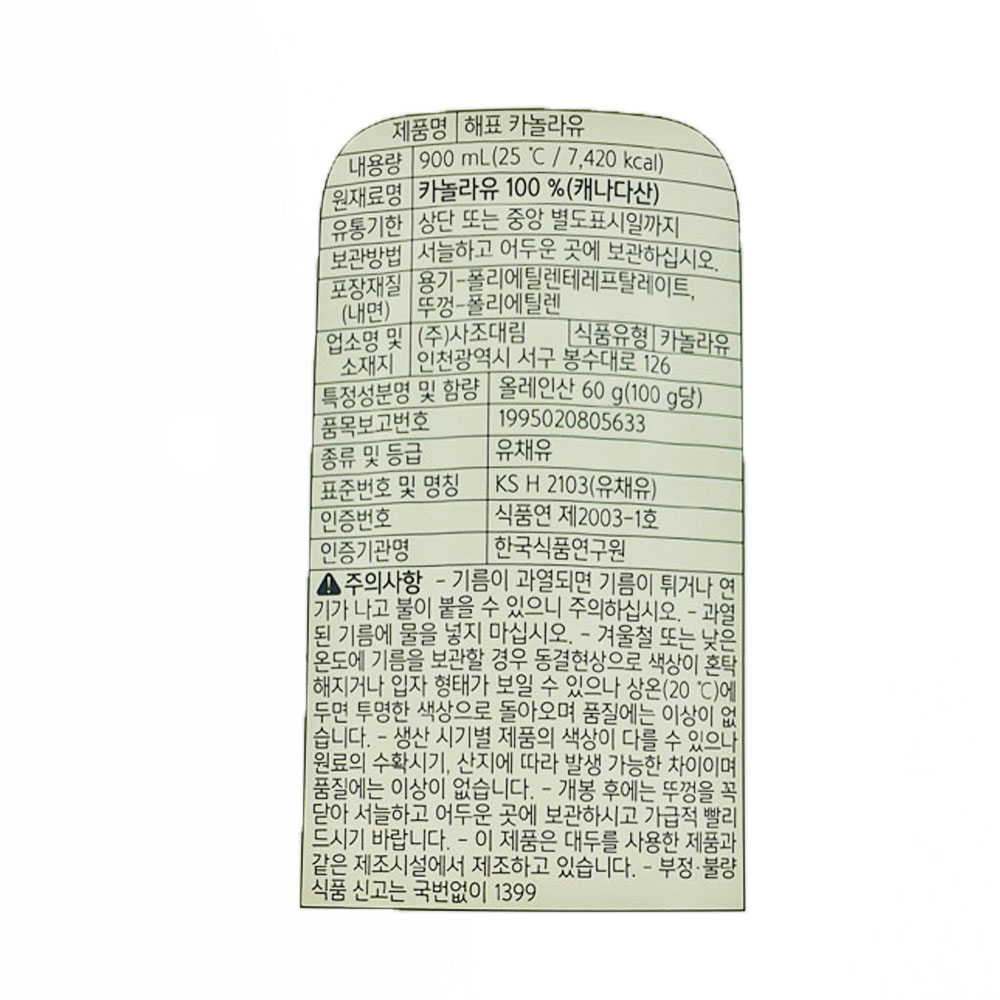 제품명 해표 카놀라유
내용량 900 mL(25 ℃ / 7,420 kcal)
원재료명 카놀라유 100 %(캐나다산)
유통기한 상단 또는 중앙 별도표시일까지
보관방법 서늘하고 어두운 곳에 보관하십시오.
포장재질 용기-폴리에틸렌테레프탈레이트,
(내면) 뚜껑-폴리에틸렌
업소명 및 (주)사조대림 식품유형 카놀라유
소재지 인천광역시 서구 봉수대로 126
특정성분명 및 함량 올레인산 60 g(100 g당)
품목보고번호 1995020805633
종류 및 등급 유채유
표준번호 및 명칭 KS H 2103(유채유)
인증번호 식품연 제2003-1호
인증기관명 한국식품연구원
주의사항 - 기름이 과열되면 기름이 튀거나 연
기가 나고 불이 붙을 수 있으니 주의하십시오. - 과열
된 기름에 물을 넣지 마십시오. - 겨울철 또는 낮은
온도에 기름을 보관할 경우 동결현상으로 색상이 혼탁
해지거나 입자 형태가 보일 수 있으나 상온(20 ℃)에
두면 투명한 색상으로 돌아오며 품질에는 이상이 없
습니다. - 생산 시기별 제품의 색상이 다를 수 있으나
원료의 수확시기, 산지에 따라 발생 가능한 차이이며
품질에는 이상이 없습니다. - 개봉 후에는 뚜껑을 꼭
닫아 서늘하고 어두운 곳에 보관하시고 가급적 빨리
드시기 바랍니다. - 이 제품은 대두를 사용한 제품과
같은 제조시설에서 제조하고 있습니다. - 부정·불량
식품 신고는 국번없이 1399